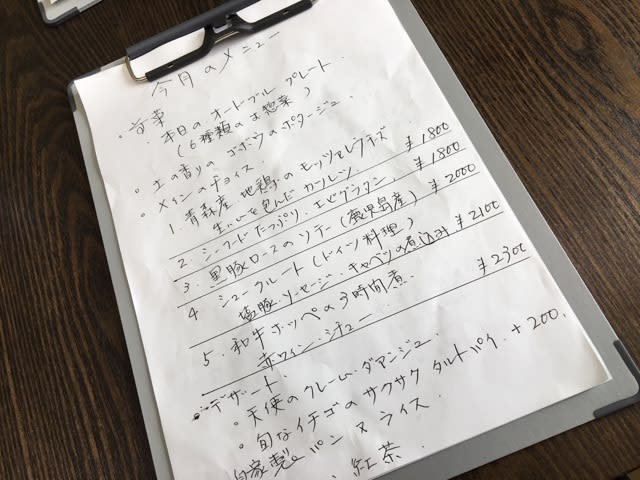 今月のメニュー
・前菜
本日のオードブル プレート.
(6種類のお惣菜)
○ 土の香りの ゴボウのポタージュ.
○ メインのチョイス.
1. 青森産 地鶏のモッツァレラチーズ
生ハムを包んだカツレツ ¥1800
2. シーフードたっぷり.エビグラタン ¥1800
3. 黒豚ロースのソテー(鹿児島産) ¥2000
4 シュークルート(ドイツ料理)
塩豚.ソーセージ.キャベツの煮込み ¥2100
5. 和牛ホッペの3時間煮.
赤ワイン.シチュー ¥2300
・デザート.
・天使のクレーム.ダアンジュ.
・旬なイチゴのサクサク タルトパイ. +200.
自家製パン又ライス.
紅茶